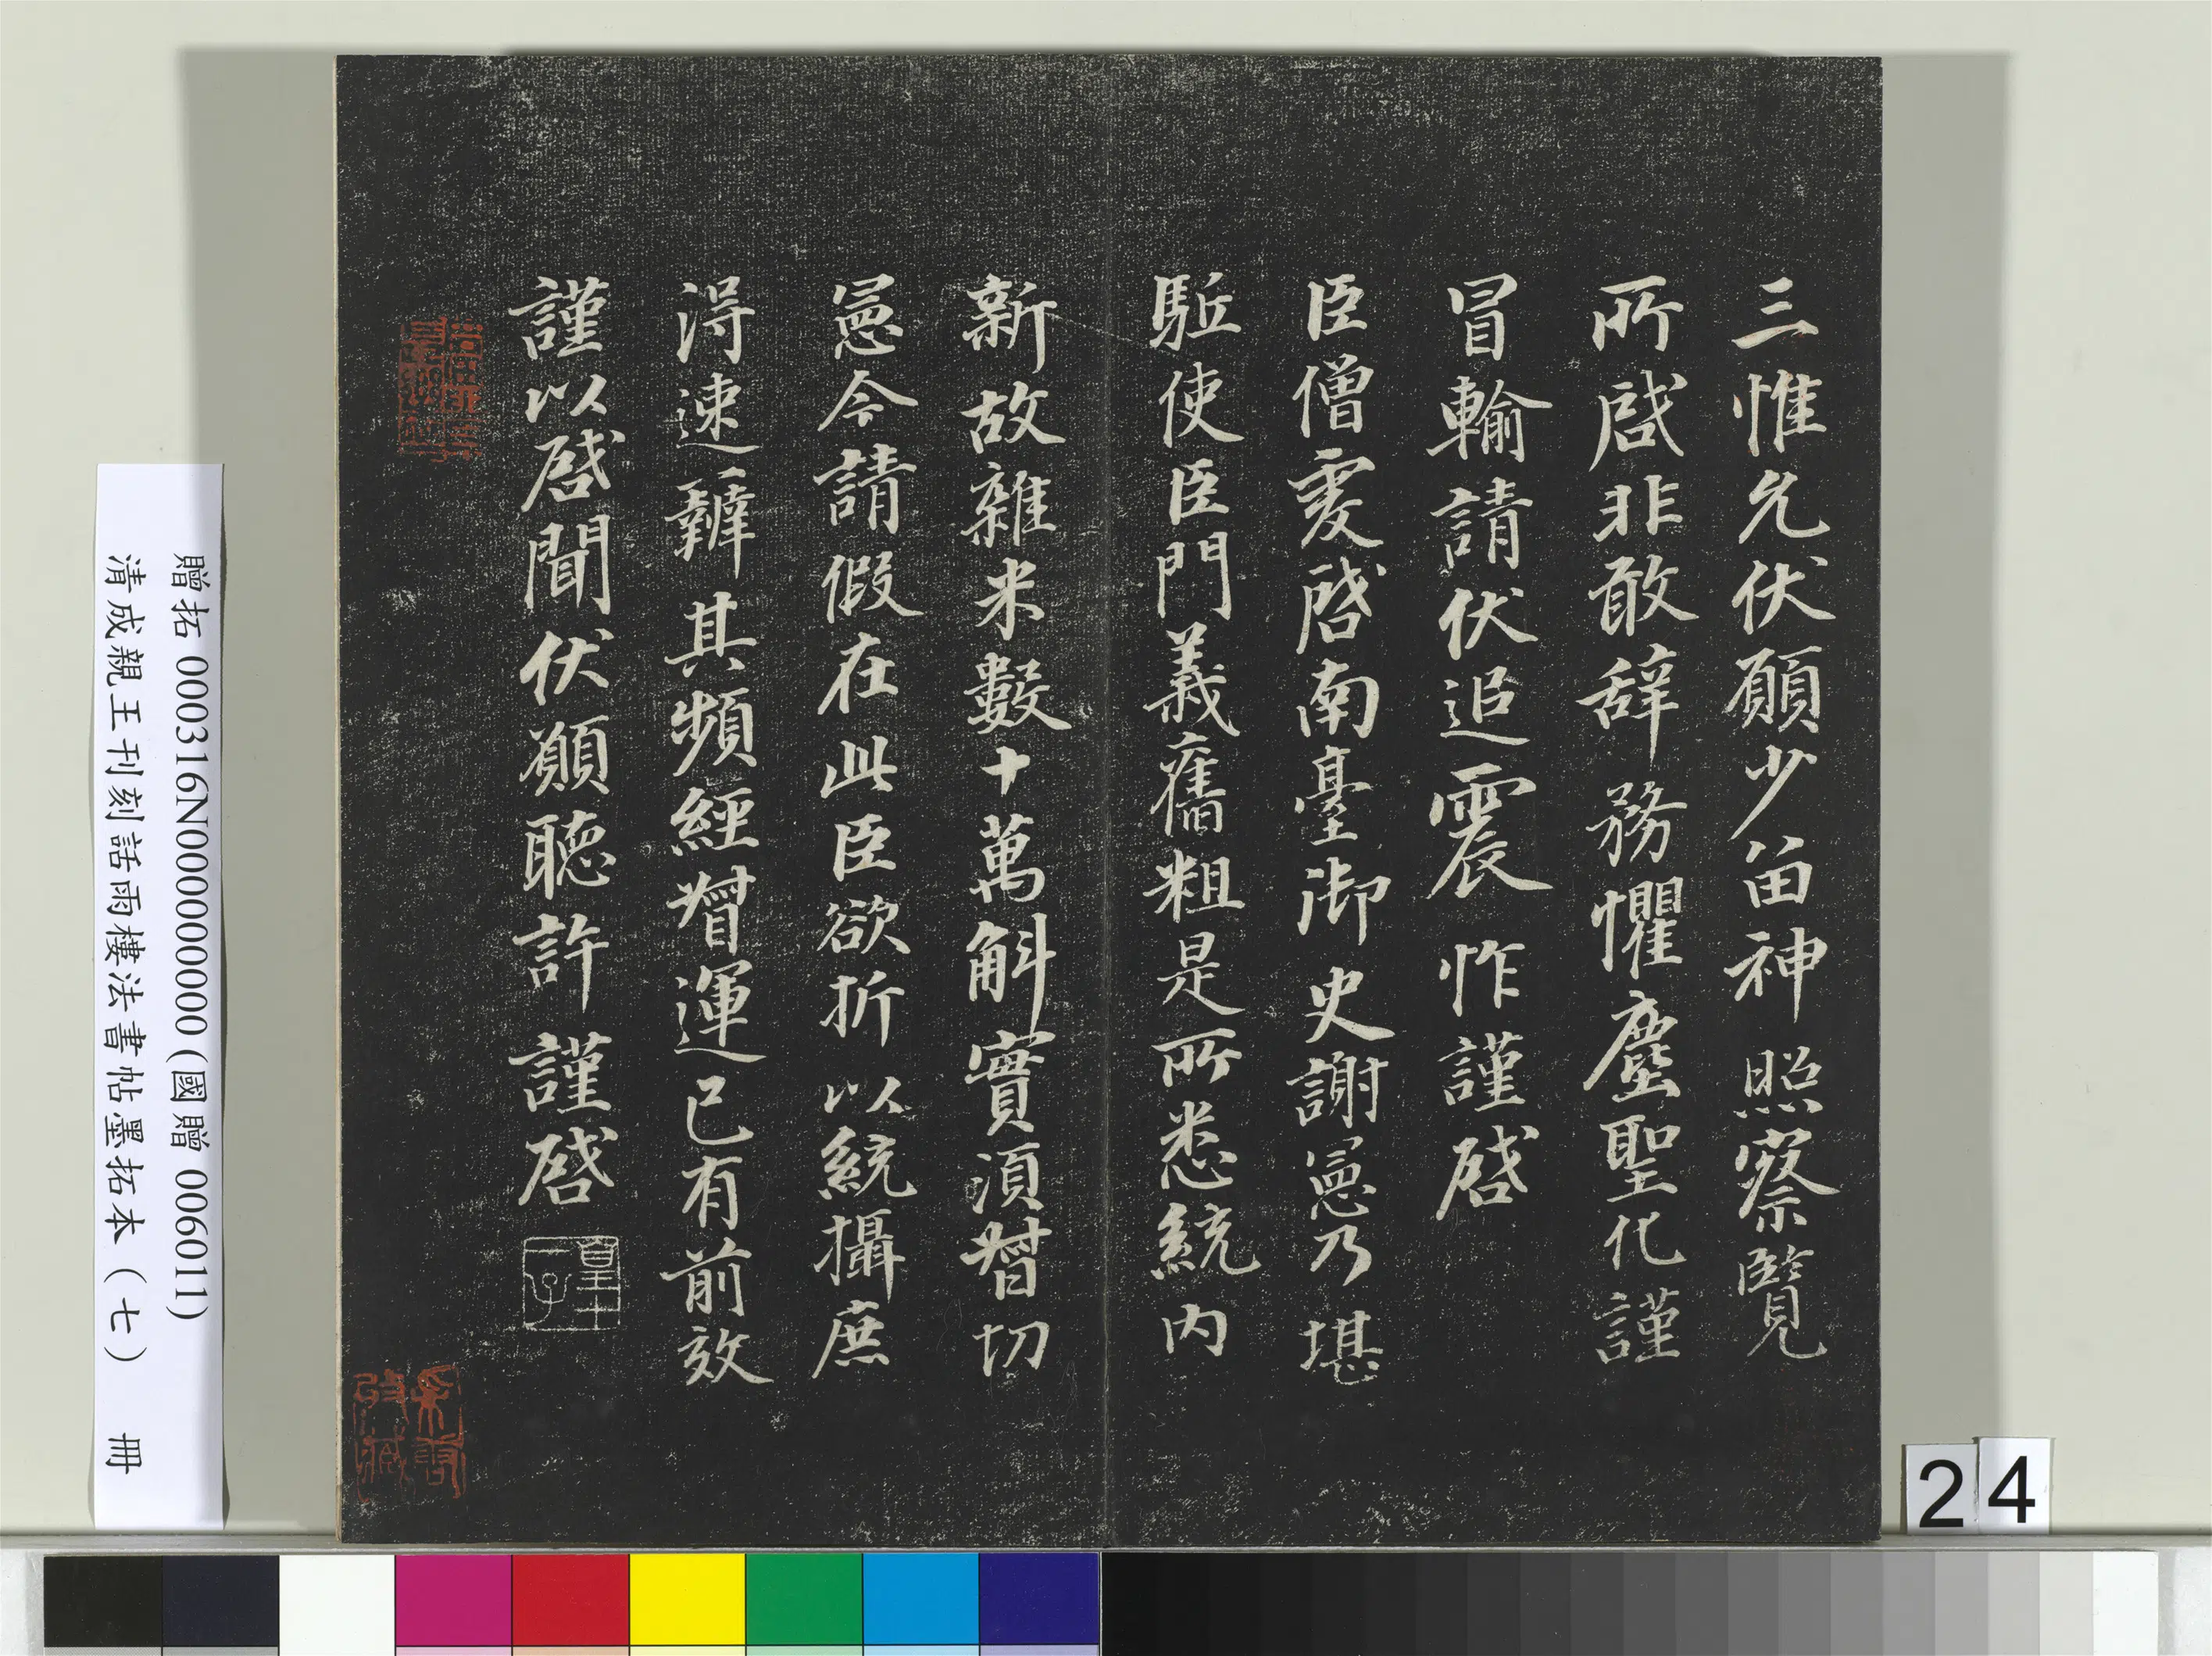 三惟允伏願少留神照察覽
所啟非敢辞務懼塵聖化謹
冒輸請伏追震怍謹啟
臣僧虔啟南臺御史謝憲乃堪
駈使臣門義舊粗是所悉統内
新故雜米數十萬斛實須督切
憲今請假在此臣欲折以統攝庶
得速辦其頻經督運已有前效
謹以啟聞伏願聽許謹啟
皇十一子
贈拓 000316N000000000 (國贈 006011)
清成親王刊刻話雨樓法書帖墨拓本 (七) 冊
24